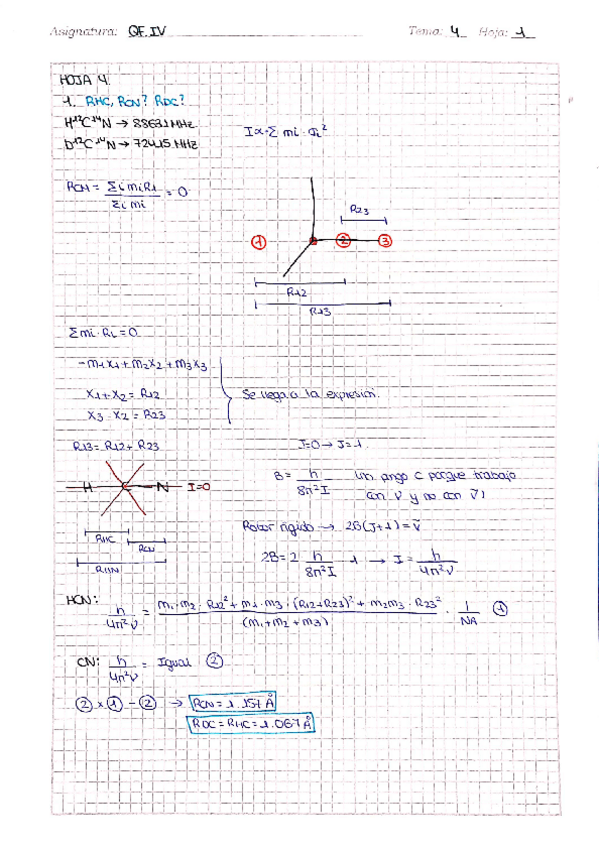 Asignatura: QF.IV Tema: 4 Hoja: 1
HOJA 4.
1. RHC, RCN? RDC?
H¹²C¹⁴N → 88631 MHz
D¹²C¹⁴N → 72415 MHz
I = Σ mi · Ri²
RCM = Σi mi Ri / Σi mi = 0
R23
1 2 3
R12
R13
Σmi · Ri = 0
-m1x1+m2x2+m3x3
x1+x2 = R12
x3-x2 = R23
Se llega a la expresión.
R13 = R12 + R23
J=0 → J=1
H C N I=0
B = h / 8π²I
(no pongo c porque trabajo
con ν y no con ν̃)
RHC
RCN
RHN
Rotor rígido → 2B(J+1) = ν̃
2B = 2 h / 8π²I · 1 → I = h / 4π²ν
HCN: h / 4π²ν = m1·m2·R12² + m1·m3·(R12+R23)² + m2m3·R23² / (m1+m2+m3) · 1 / NA ①
CN: h / 4π²ν = Igual ②
② x ① - ② → RCN = 1.157 Å
RDC = RHC = 1.067 Å